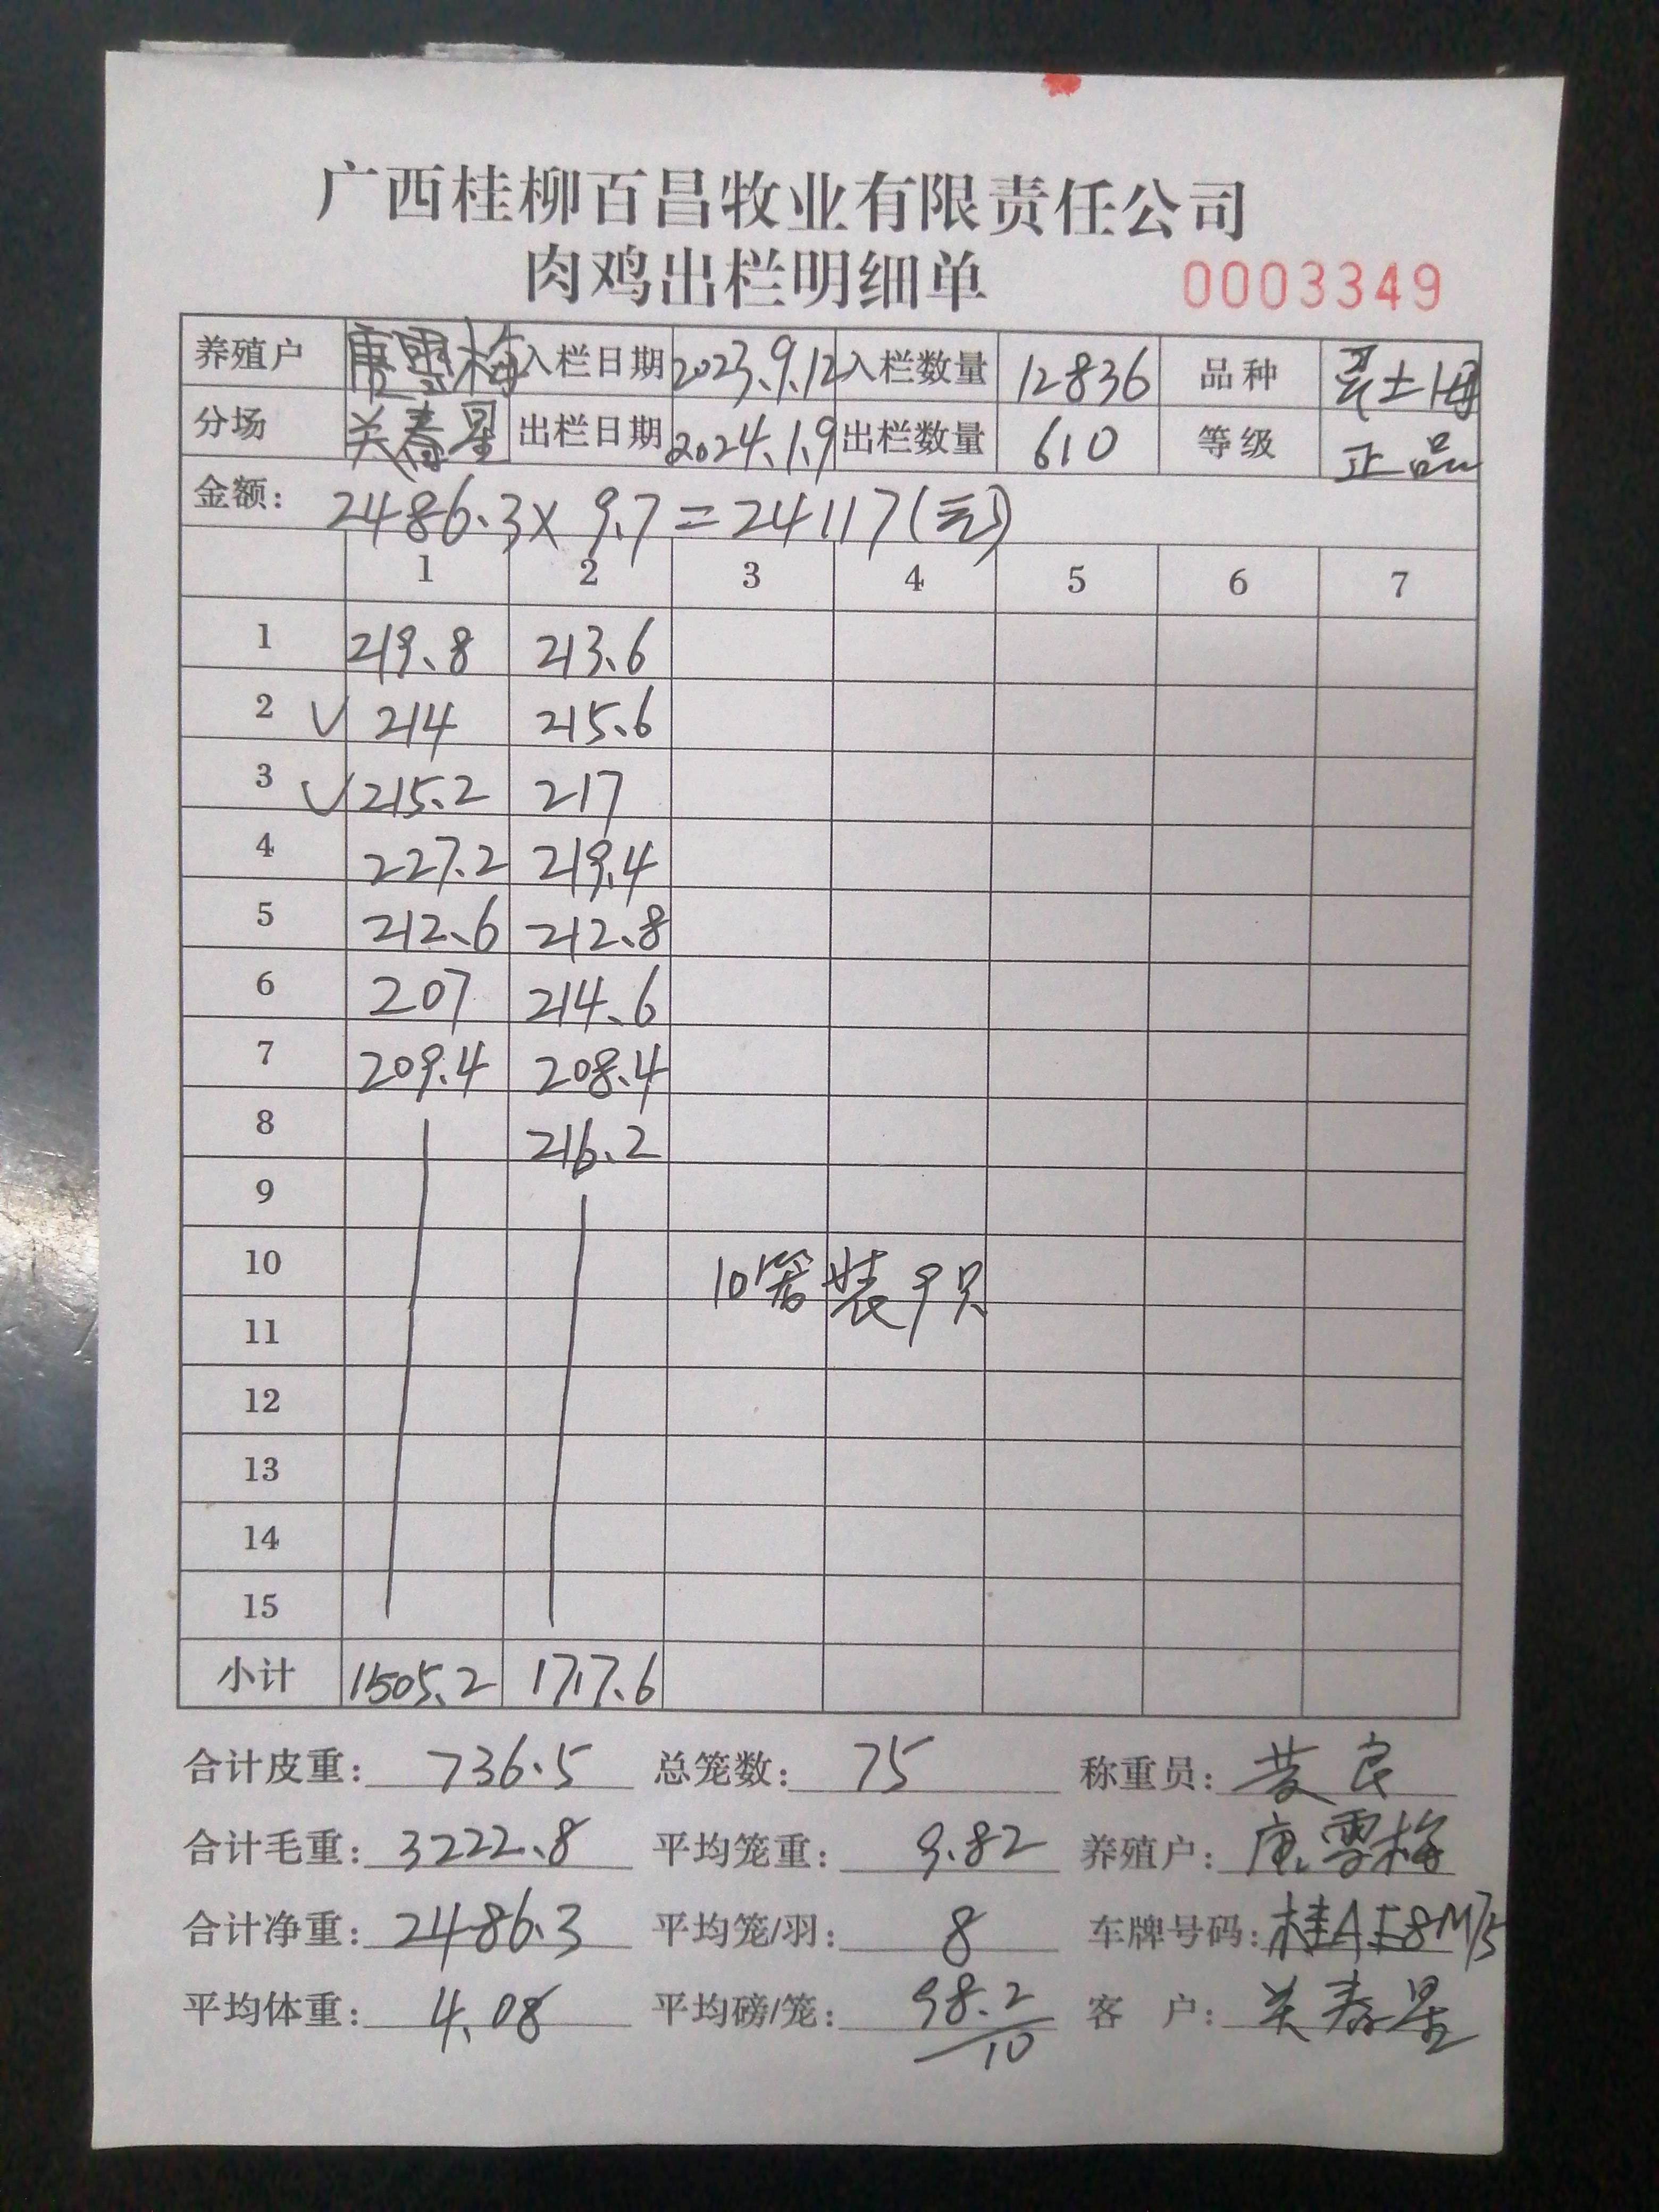 广西桂柳百昌牧业有限责任公司
肉鸡出栏明细单 0003349
养殖户 唐雪梅 入栏日期 2023.9.12 入栏数量 12836 品种 土
分场 关春星 出栏日期 2024.1.9 出栏数量 610 等级 正品
金额: 2486.3×9.7=24117(元)
1 2 3 4 5 6 7
1 219.8 213.6
2 ✓ 214 215.6
3 ✓ 215.2 217
4 227.2 219.4
5 212.6 212.8
6 207 214.6
7 209.4 208.4
8 216.2
9
10 10笼装9只
11
12
13
14
15
小计 1505.2 1717.6
合计皮重: 736.5 总笼数: 75 称重员: 良
合计毛重: 3222.8 平均笼重: 9.82 养殖户: 唐雪梅
合计净重: 2486.3 平均笼/羽: 8 车牌号码: 桂AE8M75
平均体重: 4.08 平均磅/笼: 98.2/10 客户: 关春星